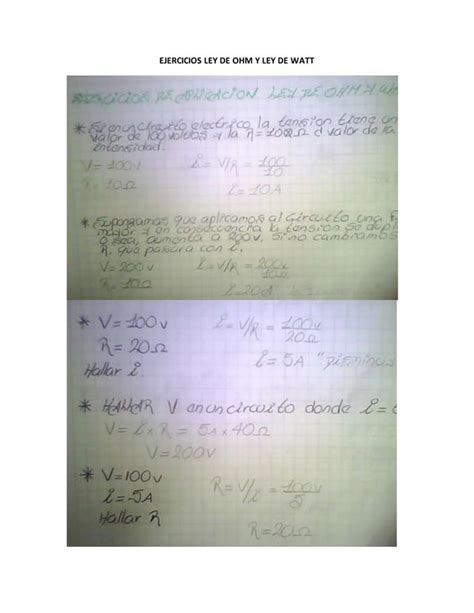 EJERCICIOS LEY DE OHM Y LEY DE WATT
EJERCICIOS DE APLICACION LEY DE OHM Y
* Si en un circuito electrico la tension tiene un
valor de 100 voltios y la R= Ω valor de la
intensidad.
V= 100V i= V/R = 100/10
R= 10Ω i= 10A
* Supongamos que aplicamos al circuito una
mayor y en consecuencia la tension se dupl
o sea, aumenta a 200v, si no cambiamos
R, que pasara con i.
V= 200v i= V/R = 200v/10Ω
R= 10Ω i=20A
* V= 100v i= V/R = 100v/20Ω
R= 20Ω i= 5A "Disminu
Hallar i
* HALLAR V en un circuito donde i=
V= i x R = 5A x 40Ω
V= 200v
* V=100v R= V/i = 100v/5
i=5A
Hallar R R= 20Ω